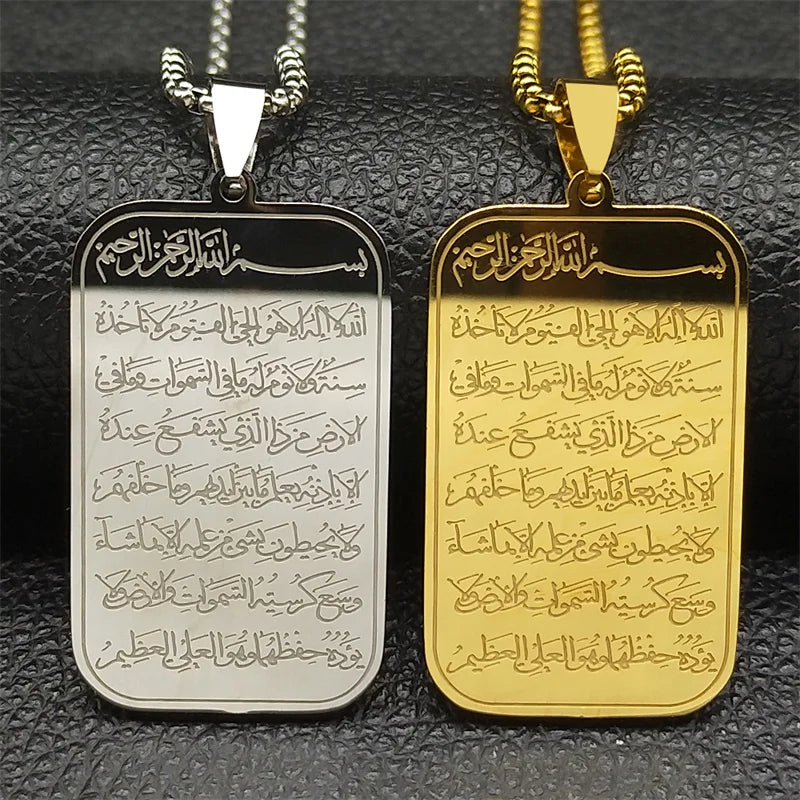 بسم الله الرحمن الرحيم
الله لا اله الا هو الحي القيوم لا تأخذه
سنة ولا نوم له ما في السموات وما في
الارض من ذا الذي يشفع عنده
إلا بإذنه يعلم ما بين أيديهم وما خلفهم
ولا يحيطون بشيء من علمه إلا بما شاء
وسع كرسيه السموات والارض ولا
يؤده حفظهما وهو العلي العظيم
بسم الله الرحمن الرحيم
الله لا اله الا هو الحي القيوم لا تأخذه
سنة ولا نوم له ما في السموات وما في
الارض من ذا الذي يشفع عنده
إلا بإذنه يعلم ما بين أيديهم وما خلفهم
ولا يحيطون بشيء من علمه إلا بما شاء
وسع كرسيه السموات والارض ولا
يؤده حفظهما وهو العلي العظيم